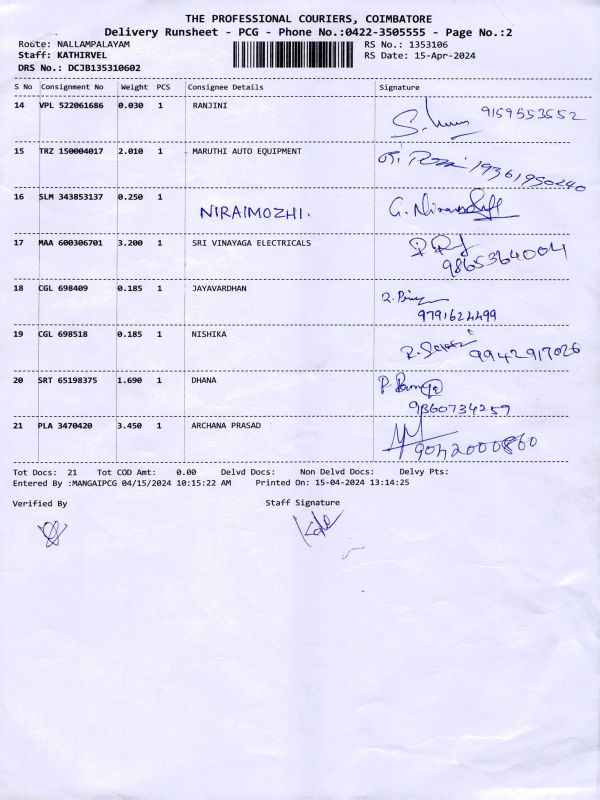 THE PROFESSIONAL COURIERS, COIMBATORE
Delivery Runsheet - PCG - Phone No.:0422-3505555 - Page No.:2
Route: NALLAMPALAYAM RS No.: 1353106
Staff: KATHIRVEL RS Date: 15-Apr-2024
DRS No.: DCJB135310602
S No Consignment No Weight PCS Consignee Details Signature
14 VPL 522061686 0.030 1 RANJINI 9159553552
15 TRZ 150004017 2.010 1 MARUTHI AUTO EQUIPMENT 19361950240
16 SLM 343853137 0.250 1 NIRAIMOZHI.
17 MAA 600306701 3.200 1 SRI VINAYAGA ELECTRICALS 9865364004
18 CGL 698409 0.185 1 JAYAVARDHAN
9791624499
19 CGL 698518 0.185 1 NISHIKA 9942917026
20 SRT 65198375 1.690 1 DHANA
9360734259
21 PLA 3470420 3.450 1 ARCHANA PRASAD
Tot Docs: 21 Tot COD Amt: 0.00 Delvd Docs: Non Delvd Docs: Delvy Pts:
Entered By :MANGAIPCG 04/15/2024 10:15:22 AM Printed On: 15-04-2024 13:14:25
Verified By Staff Signature